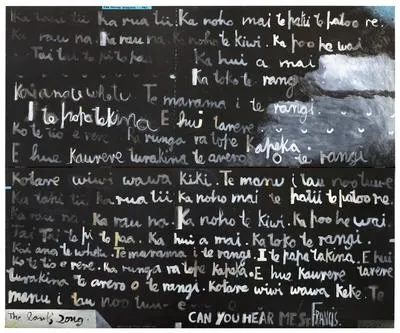 Ka tahi tii Ka rua tii. Ka noho mai te patii te patoo re.
Ka rau na. Ka rau na. Ka noho te kiwi. Ka poo he wai
Tai Tui te pi to paa. Ka hui a mai
Ka toko te rangi
Kai ana te whetu Te marama i te rangi.
I te popo takina E hui tarere
Ko te tio e rere. Ka runga ra te pe kapeka
E hue kaurere turakina te arero o te rangi
Kotare wiwi wawa kiki. Te manu i tau
Ka tahi tii Ka rua tii Ka noho mai te patii te patoo re.
Ka rau na. Ka rau na. Ka noho te kiwi. Ka poo he wai.
Tai Tui te pi to paa. Ka hui a mai. Ka toko te rangi.
Kai ana te whetu. Te marama i te rangi. I te popo takina. E hui tarere
Ko te tio e rere. Ka runga ra te pe kapeka. E hue kaurere
turakina te arero o te rangi. Kotare wiwi wawa keke. Te
manu i tau
The Lark's Song. CAN YOU HEAR ME St Francis.